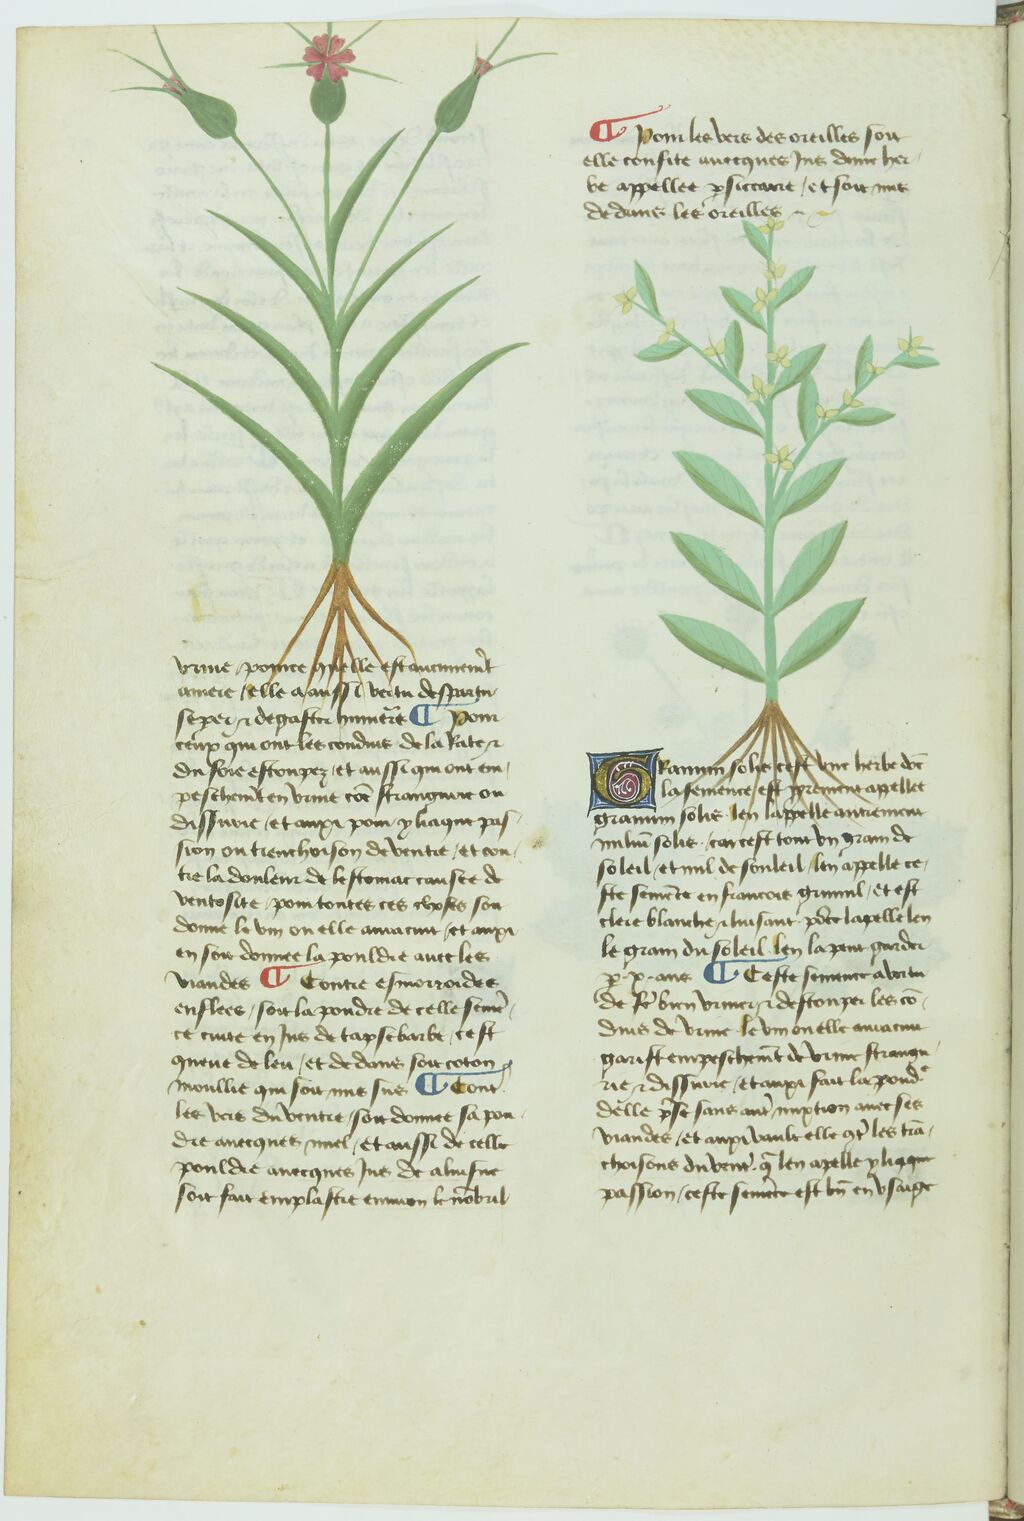 vrine / pource quelle est aucunemēt
amere / elle a aussi vertu desparti-
seper ⁊ degaster humeurs ¶ Pour
ceulx qui ont les conduis de la Rate ⁊
du foie estoupez / et aussi qui ont em-
peschemēt en vrine cōe strangurie ou
dissurie / et aupi pour yliaque pas
sion ou trenchoison de ventre / et con-
tre la douleur de lestomac causee de
ventosite / pour toutes ces choses soit
donne le vin ou elle aura cuit / et aupi
en soit donnee la pouldre auec les
viandes ¶ Contre esmorroides
enflees / soit la poudre de celle semē-
ce cuite en Jus de tapsebarbe / cest
queue de leu / et dedans soit coton
moullie qui soit mis sus ¶ Cont
les vers du ventre / soit donnee sa pou-
dre auecques miel / et aussi de celle
pouldre auecques Jus de aluisne
soit fait emplastre enuiron le nōbril
¶ Pour les vers des oreilles soit
elle confite auecques Jus dune her-
be appellee psiccarie / et soit mis
dedans les oreilles
Granum solis cest vne herbe dōt
la semence est pprement appellee
granum solis len lappelle autrement
miliū solis / car cest tout vn grain de
soleil / et mil de souleil / len appelle ce-
ste semēce en francois grumil / et est
clere blanche ⁊ luisant pōce lapelle len
le grain du soleil len la peut garder
p x ans ¶ Ceste semence a vertu
de fē bien vriner ⁊ destouper les cō-
duis de vrine le vin ou elle aura cuit
garist empeschemēt de vrine strangu-
rie ⁊ dissurie / et aupi fait la poud
delle pse sans autr miption auec ses
viandes / et aupi vault elle 9t les trā-
choisons du vent q̄ len apelle yliaque
passion / ceste semēce est bn̄ en vsaige